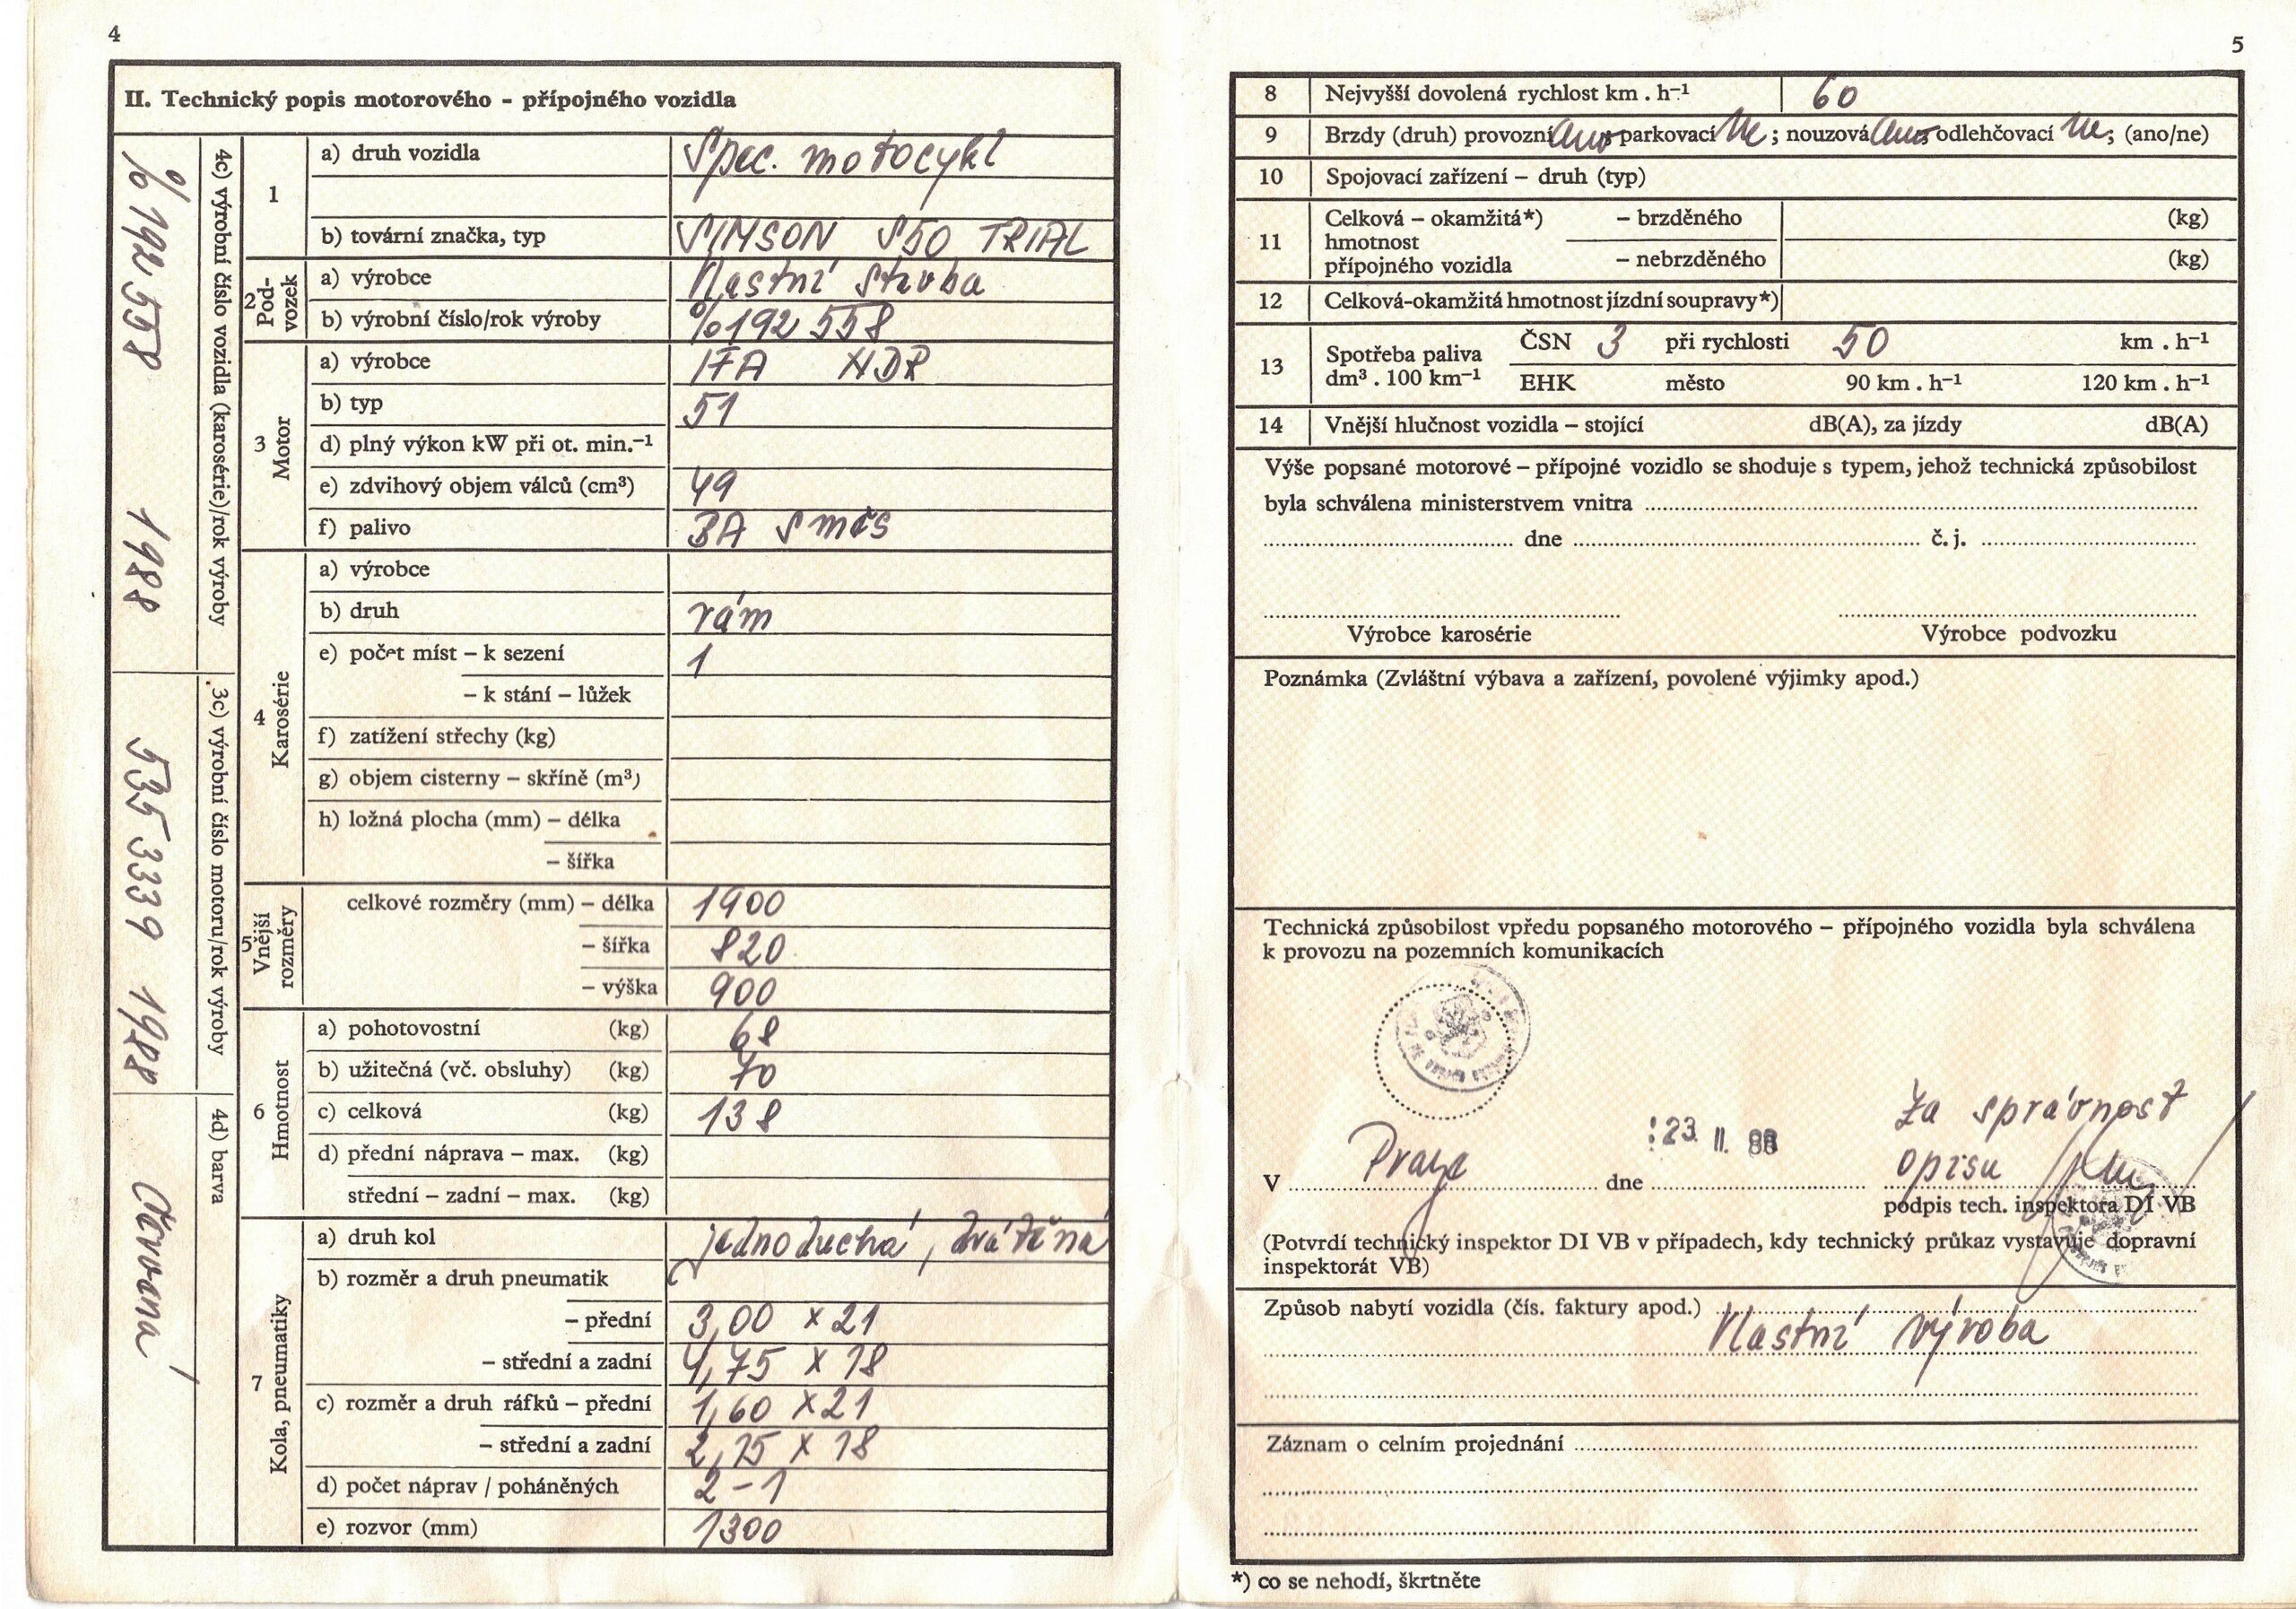 4
II. Technický popis motorového - přípojného vozidla
4c) výrobní číslo vozidla (karosérie)/rok výroby
% 192 558 1988
3c) výrobní číslo motoru/rok výroby
535 3339 1988
4d) barva
červená
1
a) druh vozidla Spec. motocykl
b) tovární značka, typ SIMSON S50 TRIAL
2 Pod-vozek
a) výrobce Vlastní stavba
b) výrobní číslo/rok výroby % 192 558
3 Motor
a) výrobce IFA NDR
b) typ 51
d) plný výkon kW při ot. min.⁻¹
e) zdvihový objem válců (cm³) 49
f) palivo BA směs
4 Karosérie
a) výrobce
b) druh rám
e) počet míst – k sezení 1
– k stání – lůžek
f) zatížení střechy (kg)
g) objem cisterny – skříně (m³)
h) ložná plocha (mm) – délka
– šířka
5 Vnější rozměry
celkové rozměry (mm) – délka 1900
– šířka 820
– výška 900
6 Hmotnost
a) pohotovostní (kg) 68
b) užitečná (vč. obsluhy) (kg) 70
c) celková (kg) 138
d) přední náprava – max. (kg)
střední – zadní – max. (kg)
7 Kola, pneumatiky
a) druh kol jednoduchá, drátěná
b) rozměr a druh pneumatik
– přední 3,00 x 21
– střední a zadní 4,75 x 18
c) rozměr a druh ráfků – přední 1,60 x 21
– střední a zadní 2,15 x 18
d) počet náprav / poháněných 2 – 1
e) rozvor (mm) 1300
5
8 Nejvyšší dovolená rychlost km . h⁻¹ 60
9 Brzdy (druh) provozní ano; parkovací ne; nouzová ano; odlehčovací ne; (ano/ne)
10 Spojovací zařízení – druh (typ)
11 Celková – okamžitá*) – brzděného (kg)
hmotnost
přípojného vozidla – nebrzděného (kg)
12 Celková-okamžitá hmotnost jízdní soupravy*)
13 Spotřeba paliva dm³ . 100 km⁻¹
ČSN 3 při rychlosti 50 km . h⁻¹
EHK město 90 km . h⁻¹ 120 km . h⁻¹
14 Vnější hlučnost vozidla – stojící dB(A), za jízdy dB(A)
Výše popsané motorové – přípojné vozidlo se shoduje s typem, jehož technická způsobilost
byla schválena ministerstvem vnitra
dne č. j.
Výrobce karosérie Výrobce podvozku
Poznámka (Zvláštní výbava a zařízení, povolené výjimky apod.)
Technická způsobilost vpředu popsaného motorového – přípojného vozidla byla schválena
k provozu na pozemních komunikacích
Za správnost
V Praze dne 23. II. 88 opisu
podpis tech. inspektora DI VB
(Potvrdí technický inspektor DI VB v případech, kdy technický průkaz vystavuje dopravní
inspektorát VB)
Způsob nabytí vozidla (čís. faktury apod.)
Vlastní výroba
Záznam o celním projednání
*) co se nehodí, škrtněte